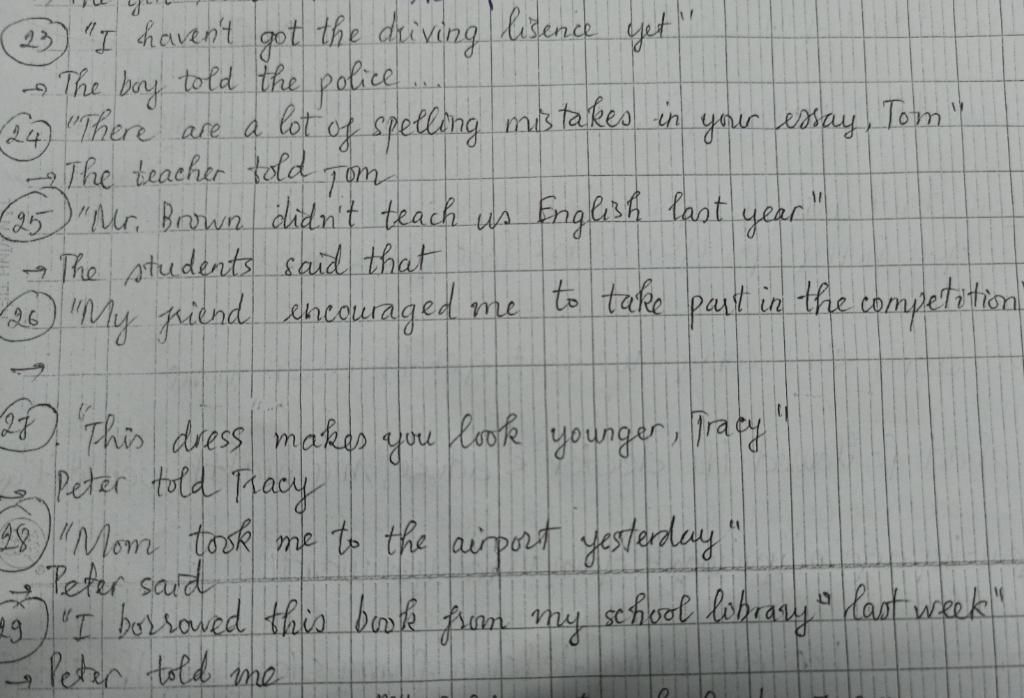 23 "I haven't got the driving lisence yet"
→ The boy told the police...
24 "There are a lot of spelling mistakes in your essay, Tom"
→ The teacher told Tom
25 "Mr. Brown didn't teach us English last year"
→ The students said that
26 "My friend encouraged me to take part in the competition
→
27. "This dress makes you look younger, Tracy"
→ Peter told Tracy
28 "Mom took me to the airport yesterday"
→ Peter said
29 "I borrowed this book from my school library last week"
→ Peter told me